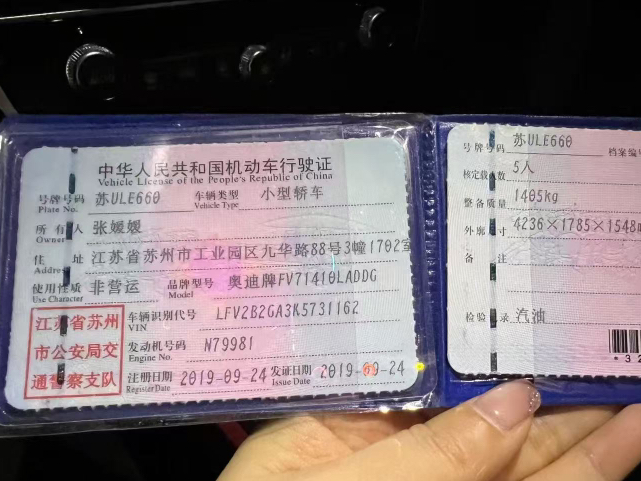 中华人民共和国机动车行驶证
Vehicle License of the People's Republic of China
号牌号码 苏ULE660 车辆类型 小型轿车
Plate No. Vehicle Type
所有人 张媛媛
Owner
住址 江苏省苏州市工业园区九华路88号3幢1702室
Address
使用性质 非营运 品牌型号 奥迪牌FV71410LADDG
Use Character Model
江苏省苏州
市公安局交
通警察支队
车辆识别代号 LFV2B2GA3K5731162
VIN
发动机号码 N79981
Engine No.
注册日期 2019-09-24 发证日期 2019-09-24
Register Date Issue Date
号牌号码 苏ULE660 档案编号
核定载人数 5人
整备质量 1405kg
外廓尺寸 4236×1785×1548
备注
检验记录 汽油
*32